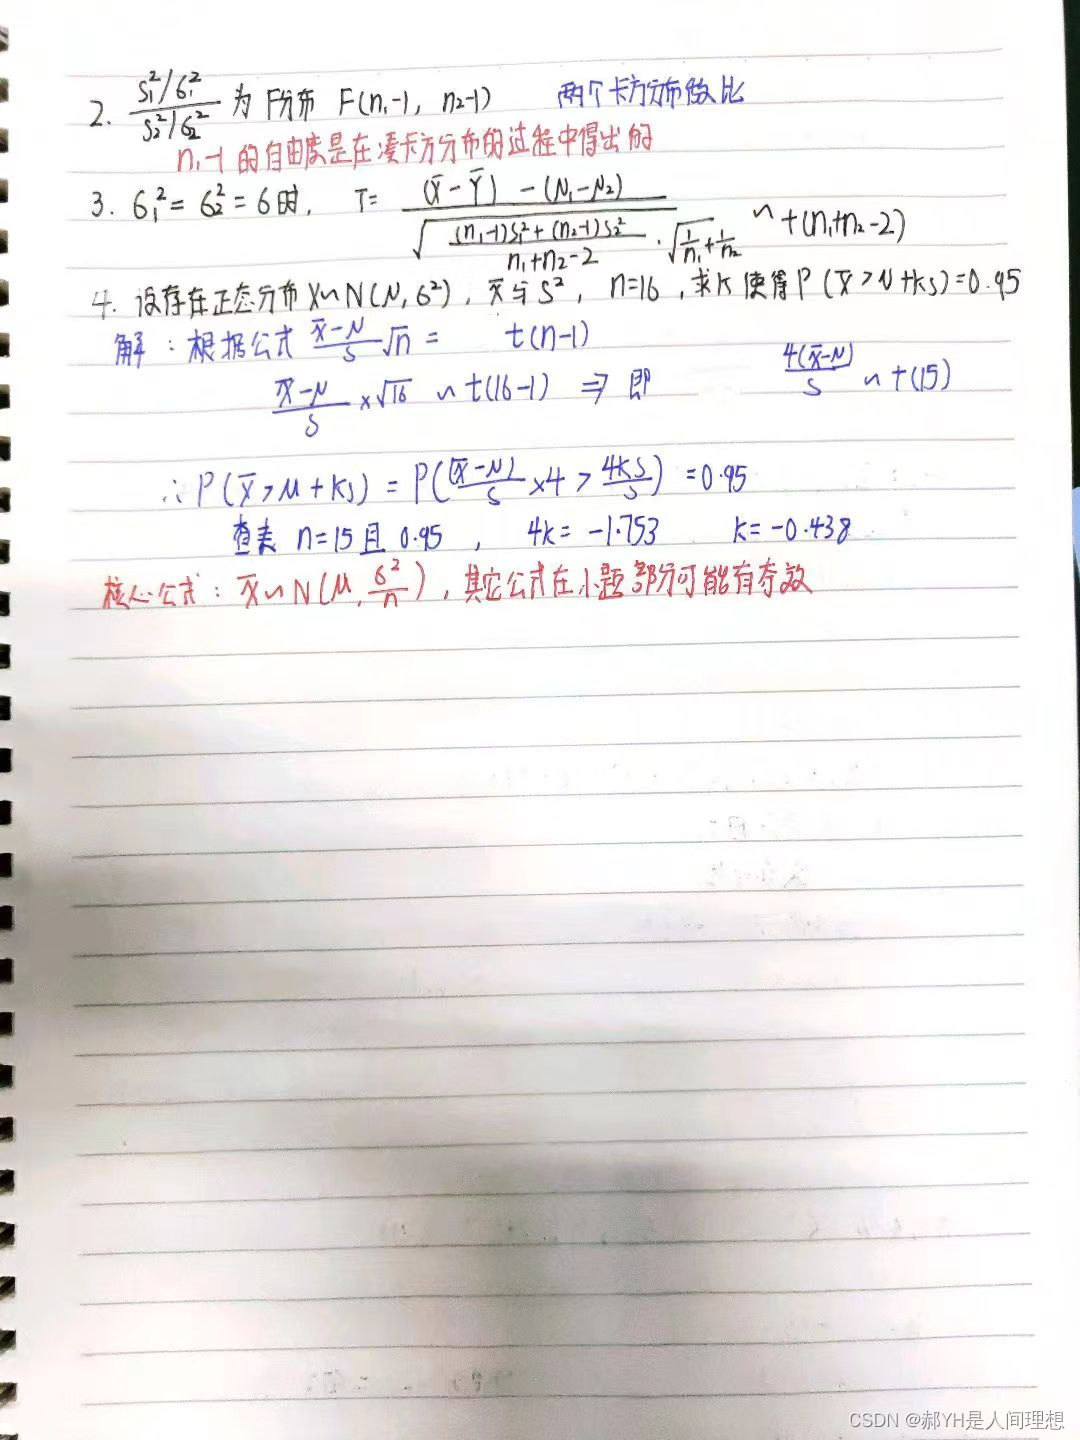 2. (S₁²/σ₁²)/(S₂²/σ₂²) 为 F分布 F(n₁-1, n₂-1) 两个卡方分布做比
n₁-1 的自由度是在凑卡方分布的过程中得出的
3. σ₁² = σ₂² = σ时, T = ((X̄-Ȳ) - (μ₁-μ₂)) / (√(((n₁-1)S₁²+(n₂-1)S₂²)/(n₁+n₂-2)) · √(1/n₁+1/n₂)) ~ t(n₁+n₂-2)
4. 设存在正态分布 X~N(μ, σ²), x̄与S², n=16, 求k 使得P(x̄>μ+ks)=0.95
解: 根据公式 (x̄-μ)/s √n = t(n-1)
(x̄-μ)/s × √16 ~ t(16-1) ⇒ 即 4(x̄-μ)/s ~ t(15)
∴ P(x̄>μ+ks) = P((x̄-μ)/s ×4 > 4ks/s) = 0.95
查表 n=15 且 0.95, 4k= -1.753 k= -0.438
核心公式: x̄~N(μ, σ²/n), 其它公式在小题部分可能有奇效
CSDN @郝YH是人间理想